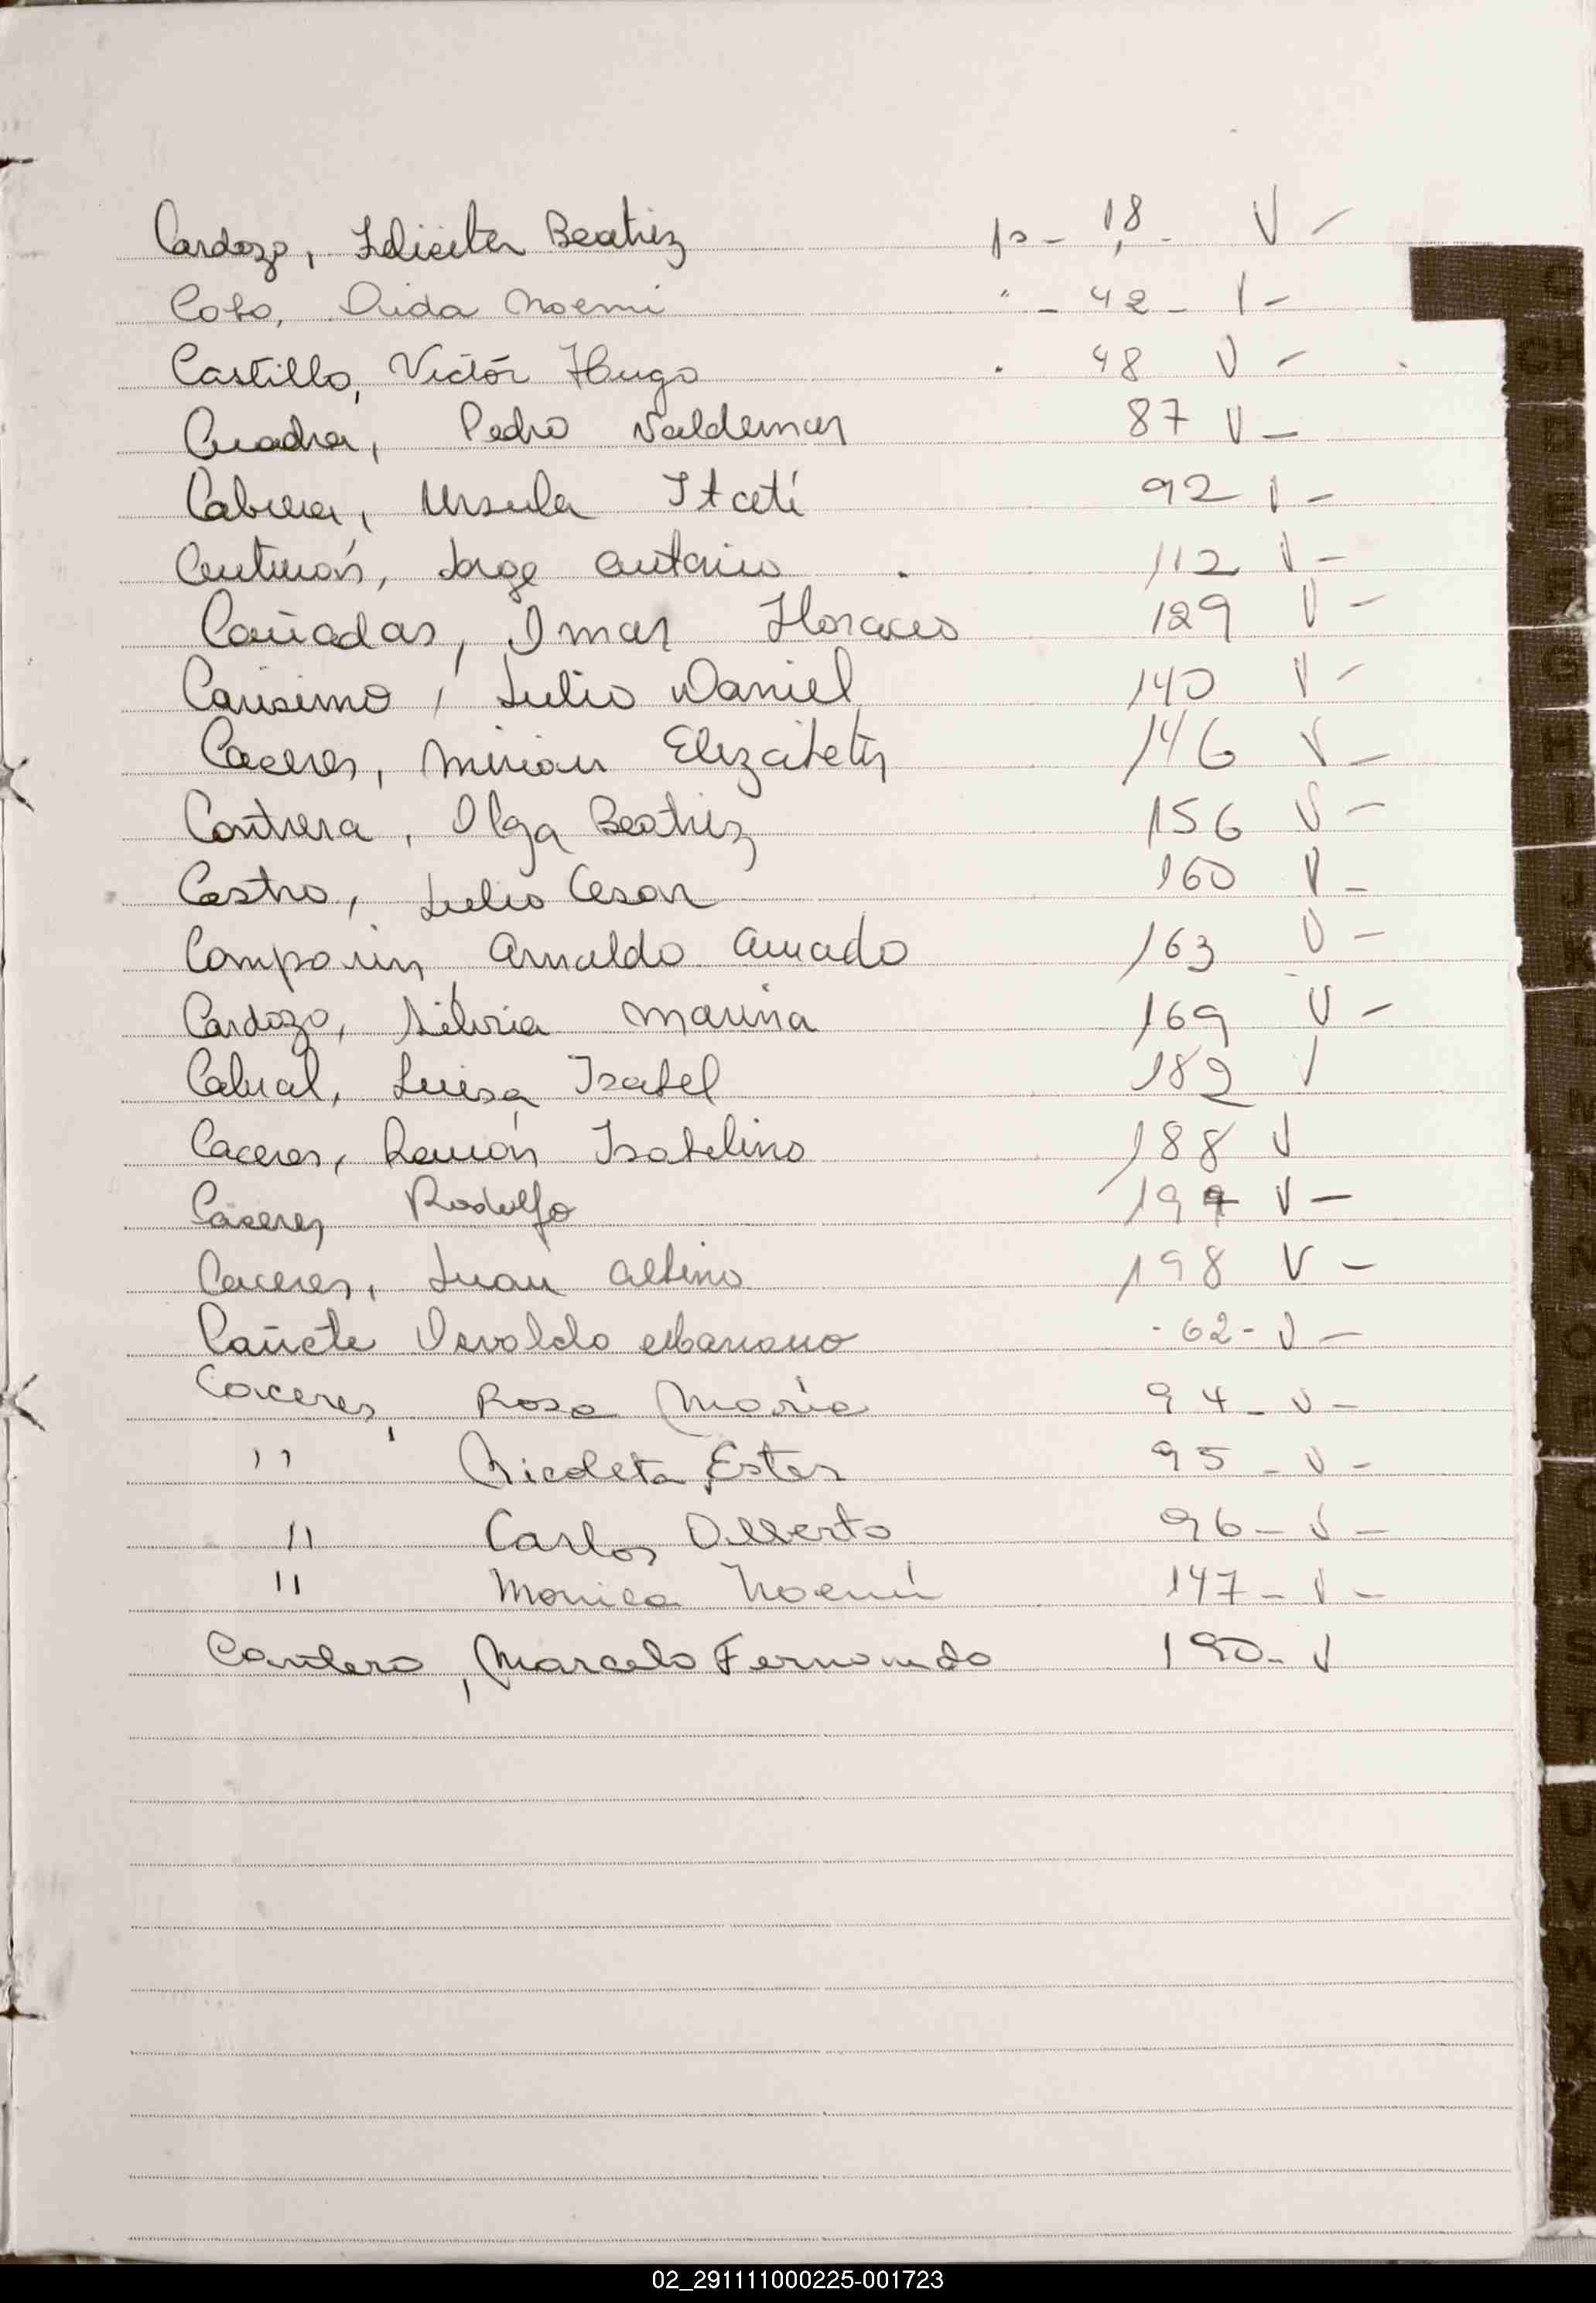 Cardozo, Felicita Beatriz 1o - 18 - V -
Coto, Aida Noemi " - 42 - V -
Castillo, Victór Hugo 48 V -
Cuadra, Pedro Valdemar 87 V -
Cabrera, Ursula Itatí 92 V -
Centurión, Jorge Antonio 112 V -
Cañadas, Omar Horacio 129 V -
Carisimo, Julio Daniel 140 V -
Caceres, Mirian Elizabeth 146 V -
Contrera, Olga Beatriz 156 V -
Castro, Julio Cesar 160 V -
Comparin, Arnaldo Amado 163 V -
Cardozo, Silvia Marina 169 V -
Cabral, Luisa Isabel 182 V
Caceres, Ramón Isabelino 188 V
Caceres, Rodolfo 197 V -
Caceres, Juan Albino 198 V -
Cañete Osvaldo Mariano 62 - V -
Caceres, Rosa María 94 - V -
" Nicoleta Ester 95 - V -
" Carlos Alberto 96 - V -
" Monica Noemí 147 - V -
Cantero, Marcelo Fernando 190 - V
C
CH
D
E
F
G
H
I
J
K
L
M
N
Ñ
O
P
Q
R
S
T
U
V
W
X
Y
Z
02_291111000225-001723